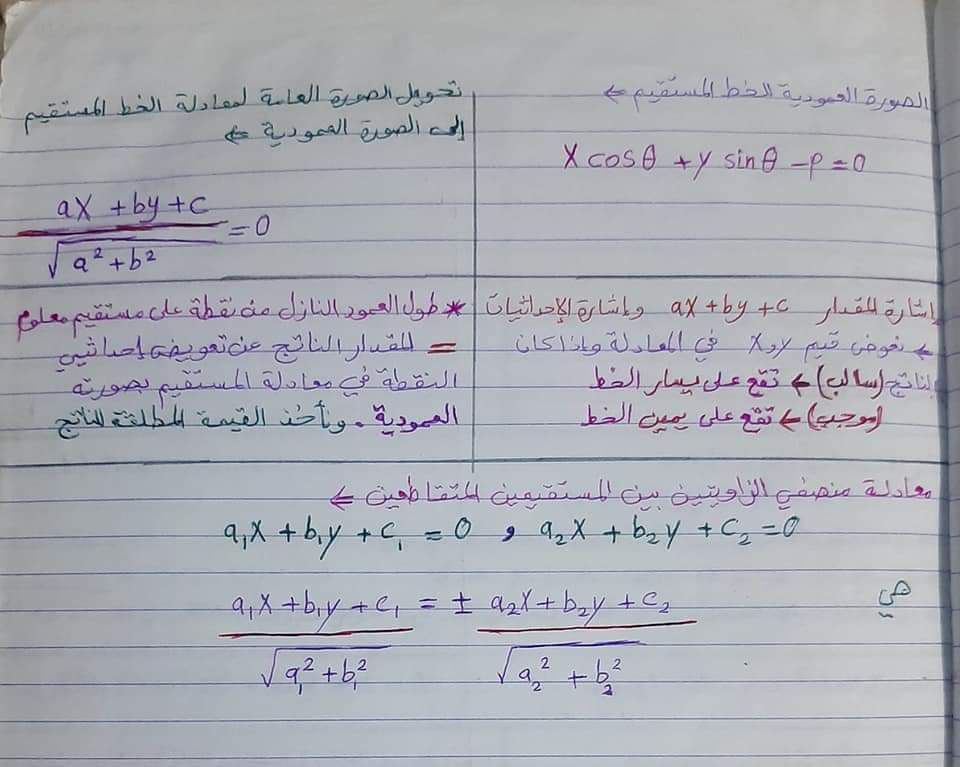 الصورة العمودية الخط المستقيم ←
x cosθ + y sinθ - p = 0
تحويل الصورة العامة لمعادلة الخط المستقيم
إلى الصورة العمودية ←
ax + by + c / √a² + b² = 0
إشارة المقدار ax + by + c وإشارة الإحداثيات
← نعوض قيم x و y في المعادلة وإذا كان
الناتج (سالب) ← تقع على يسار الخط
(موجب) ← تقع على يمين الخط
* طول العمود النازل من نقطة على مستقيم معلوم
= المقدار الناتج عن تعويض إحداثيي
النقطة في معادلة المستقيم بصورته
العمودية. ونأخذ القيمة المطلقة للناتج
معادلة منصفي الزاويتين بين المستقيمين المتقاطعين ←
a₁x + b₁y + c₁ = 0 و a₂x + b₂y + c₂ = 0
هي
a₁x + b₁y + c₁ / √a₁² + b₁² = ± a₂x + b₂y + c₂ / √a₂² + b₂²